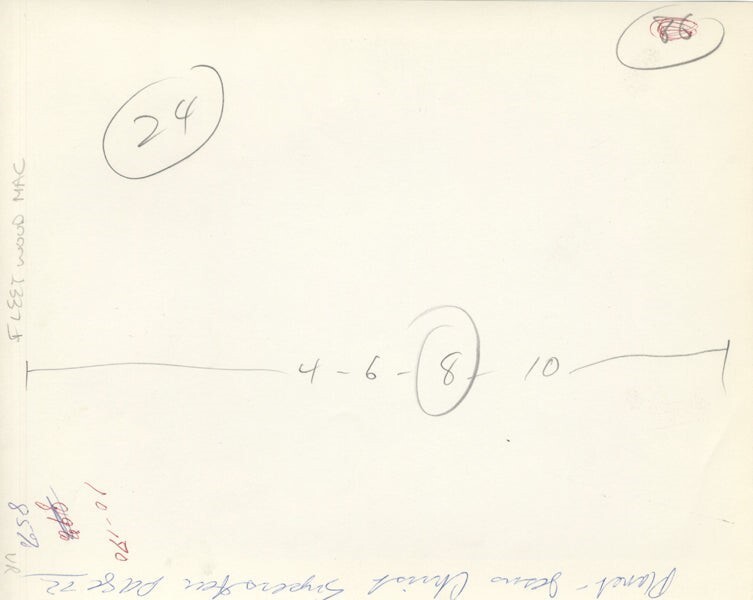 86
24
FLEETWOOD MAC
4 - 6 - 8 - 10
10-170
8592
VR
Planet - Jesus Christ Superstar PAGE 72